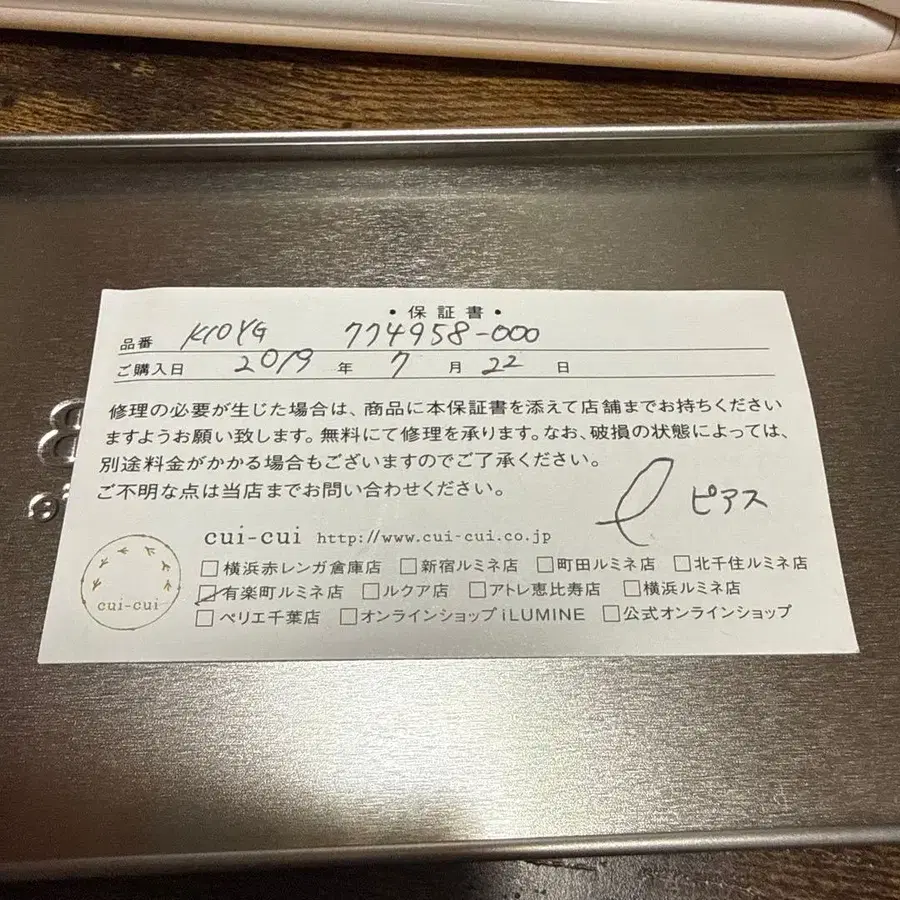 ・保証書・
品番 K10YG 774958-000
ご購入日 2019年 7月 22日
修理の必要が生じた場合は、商品に本保証書を添えて店舗までお持ちください
ますようお願い致します。無料にて修理を承ります。なお、破損の状態によっては、
別途料金がかかる場合もございますのでご了承ください。
ご不明な点は当店までお問い合わせください。
ピアス
cui-cui http://www.cui-cui.co.jp
□横浜赤レンガ倉庫店 □新宿ルミネ店 □町田ルミネ店 □北千住ルミネ店
☑有楽町ルミネ店 □ルクア店 □アトレ恵比寿店 □横浜ルミネ店
□ペリエ千葉店 □オンラインショップ iLUMINE □公式オンラインショップ
cui-cui